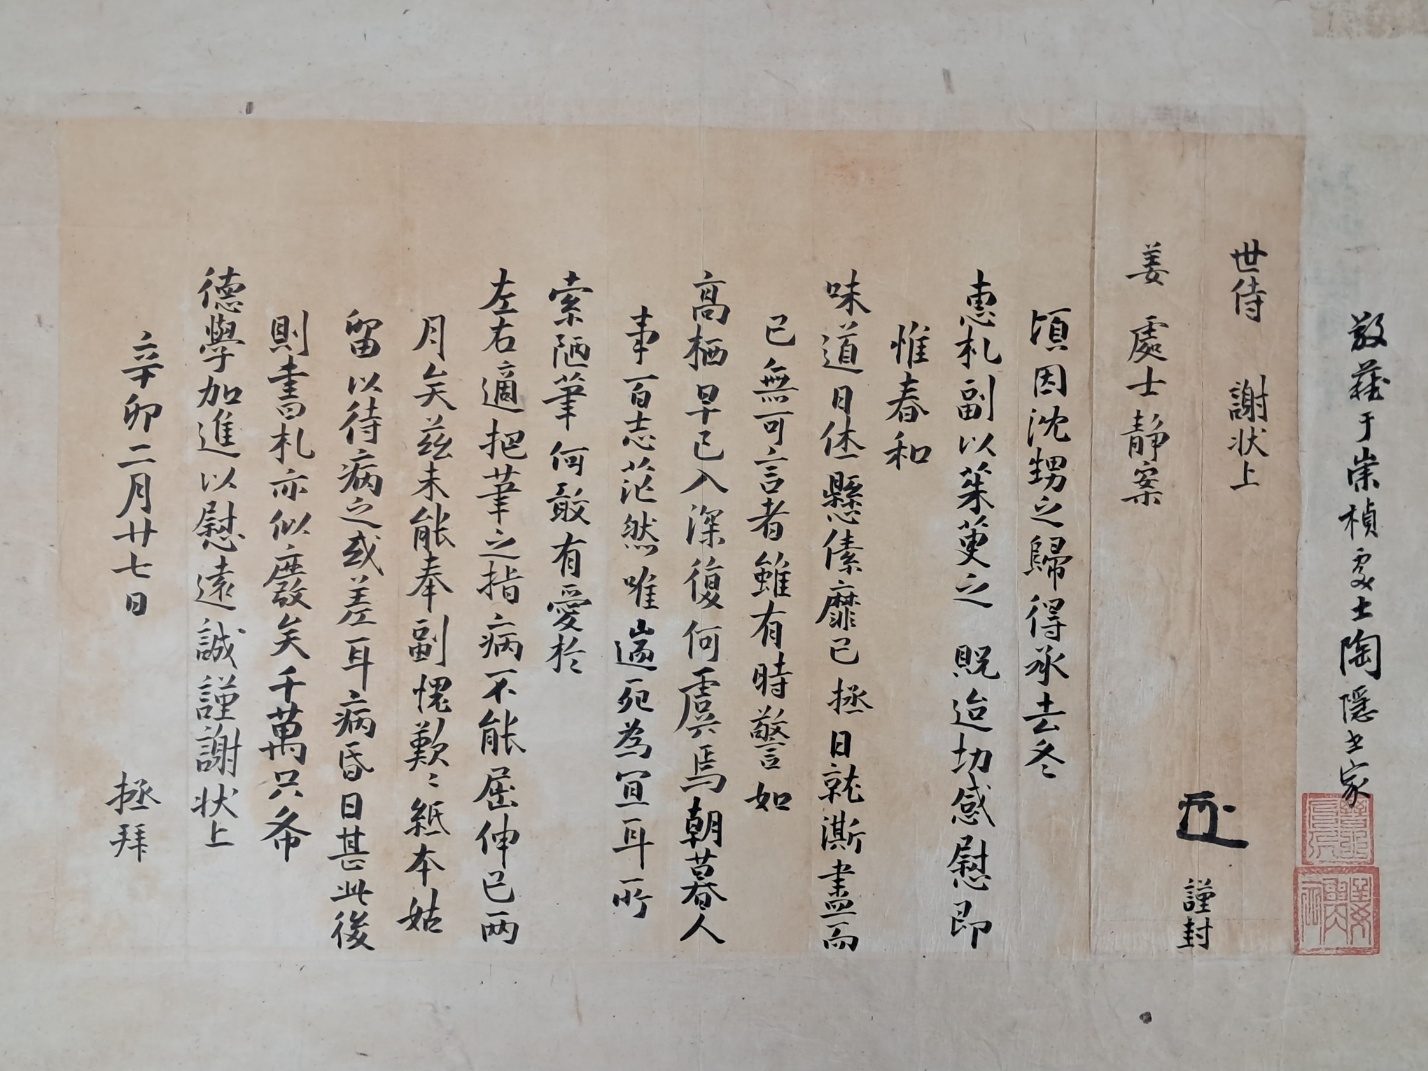 敬藏于崇禎處士陶隱土家
世侍 謝狀上
謹封
姜 處士 靜案
頃因沈甥之歸得承去冬
惠札副以茱萸之 貺迨切感慰即
惟春和
味道日休懸傃靡已拯日就澌盡而
已無可言者雖有時警如
高栖早已入深復何虞焉朝暮人
事百志茫然唯遄死為宜耳所
索陋筆何敢有愛於
左右適把筆之指病不能屈伸已兩
月矣茲未能奉副愧歎〻紙本姑
留以待病之或差耳病昏日甚此後
則書札亦似廢矣千萬只希
德學加進以慰遠誠謹謝狀上
辛卯二月廿七日
拯拜